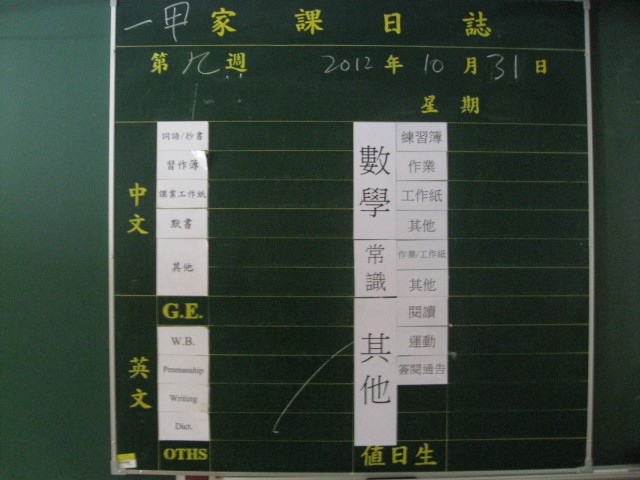 一甲 家課日誌
第九週 2012年10月31日
星期
中文
詞語/抄書
習作簿
課業工作紙
默書
其他
英文
G.E.
W.B.
Penmanship
Writing
Dict.
OTHS
數學
練習簿
作業
工作紙
其他
常識
作業/工作紙
其他
其他
閱讀
運動
簽閱通告
值日生